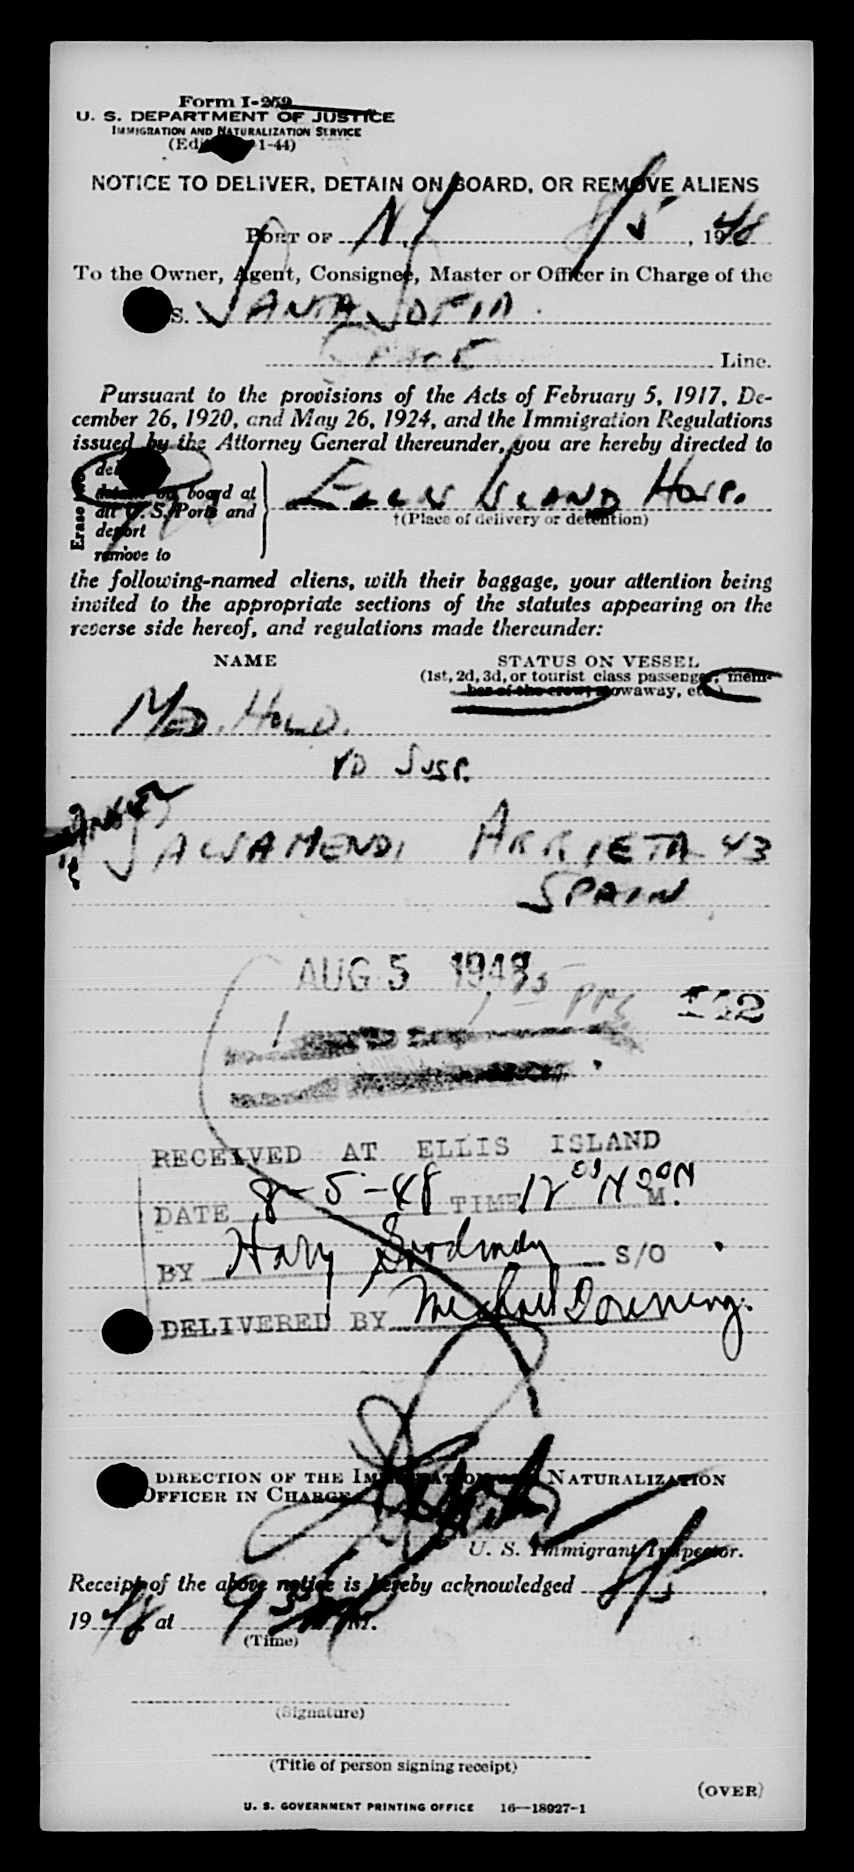 Form I-259
U. S. DEPARTMENT OF JUSTICE
IMMIGRATION AND NATURALIZATION SERVICE
1-44)
NOTICE TO DELIVER, DETAIN ON BOARD, OR REMOVE ALIENS
PORT OF NY 8/5, 1948
To the Owner, Agent, Consignee, Master or Officer in Charge of the
S. SANTA SOFIA
Line.
Pursuant to the provisions of the Acts of February 5, 1917, De-
cember 26, 1920, and May 26, 1924, and the Immigration Regulations
issued by the Attorney General thereunder, you are hereby directed to
Erase two
detain on board at
all U. S. Ports and
deport
remove to
ELLIS ISLAND HOSP.
†(Place of delivery or detention)
the following-named aliens, with their baggage, your attention being
invited to the appropriate sections of the statutes appearing on the
reverse side hereof, and regulations made thereunder:
NAME STATUS ON VESSEL
(1st, 2d, 3d, or tourist class passenger, mem-
ber of the crew, stowaway, etc.)
MED. HOLD.
VD SUSP.
ARRIETA 43
SPAIN
AUG 5 1948
RECEIVED AT ELLIS ISLAND
DATE 8-5-48 TIME 12 00 NOON M.
BY S/O
DELIVERED BY Michael Downing
DIRECTION OF THE IMMIGRATION AND NATURALIZATION
OFFICER IN CHARGE
U. S. Immigrant Inspector.
Receipt of the above notice is hereby acknowledged 8/5,
1948 at M.
(Time)
(Signature)
(Title of person signing receipt)
(OVER)
U. S. GOVERNMENT PRINTING OFFICE 16—18927-1